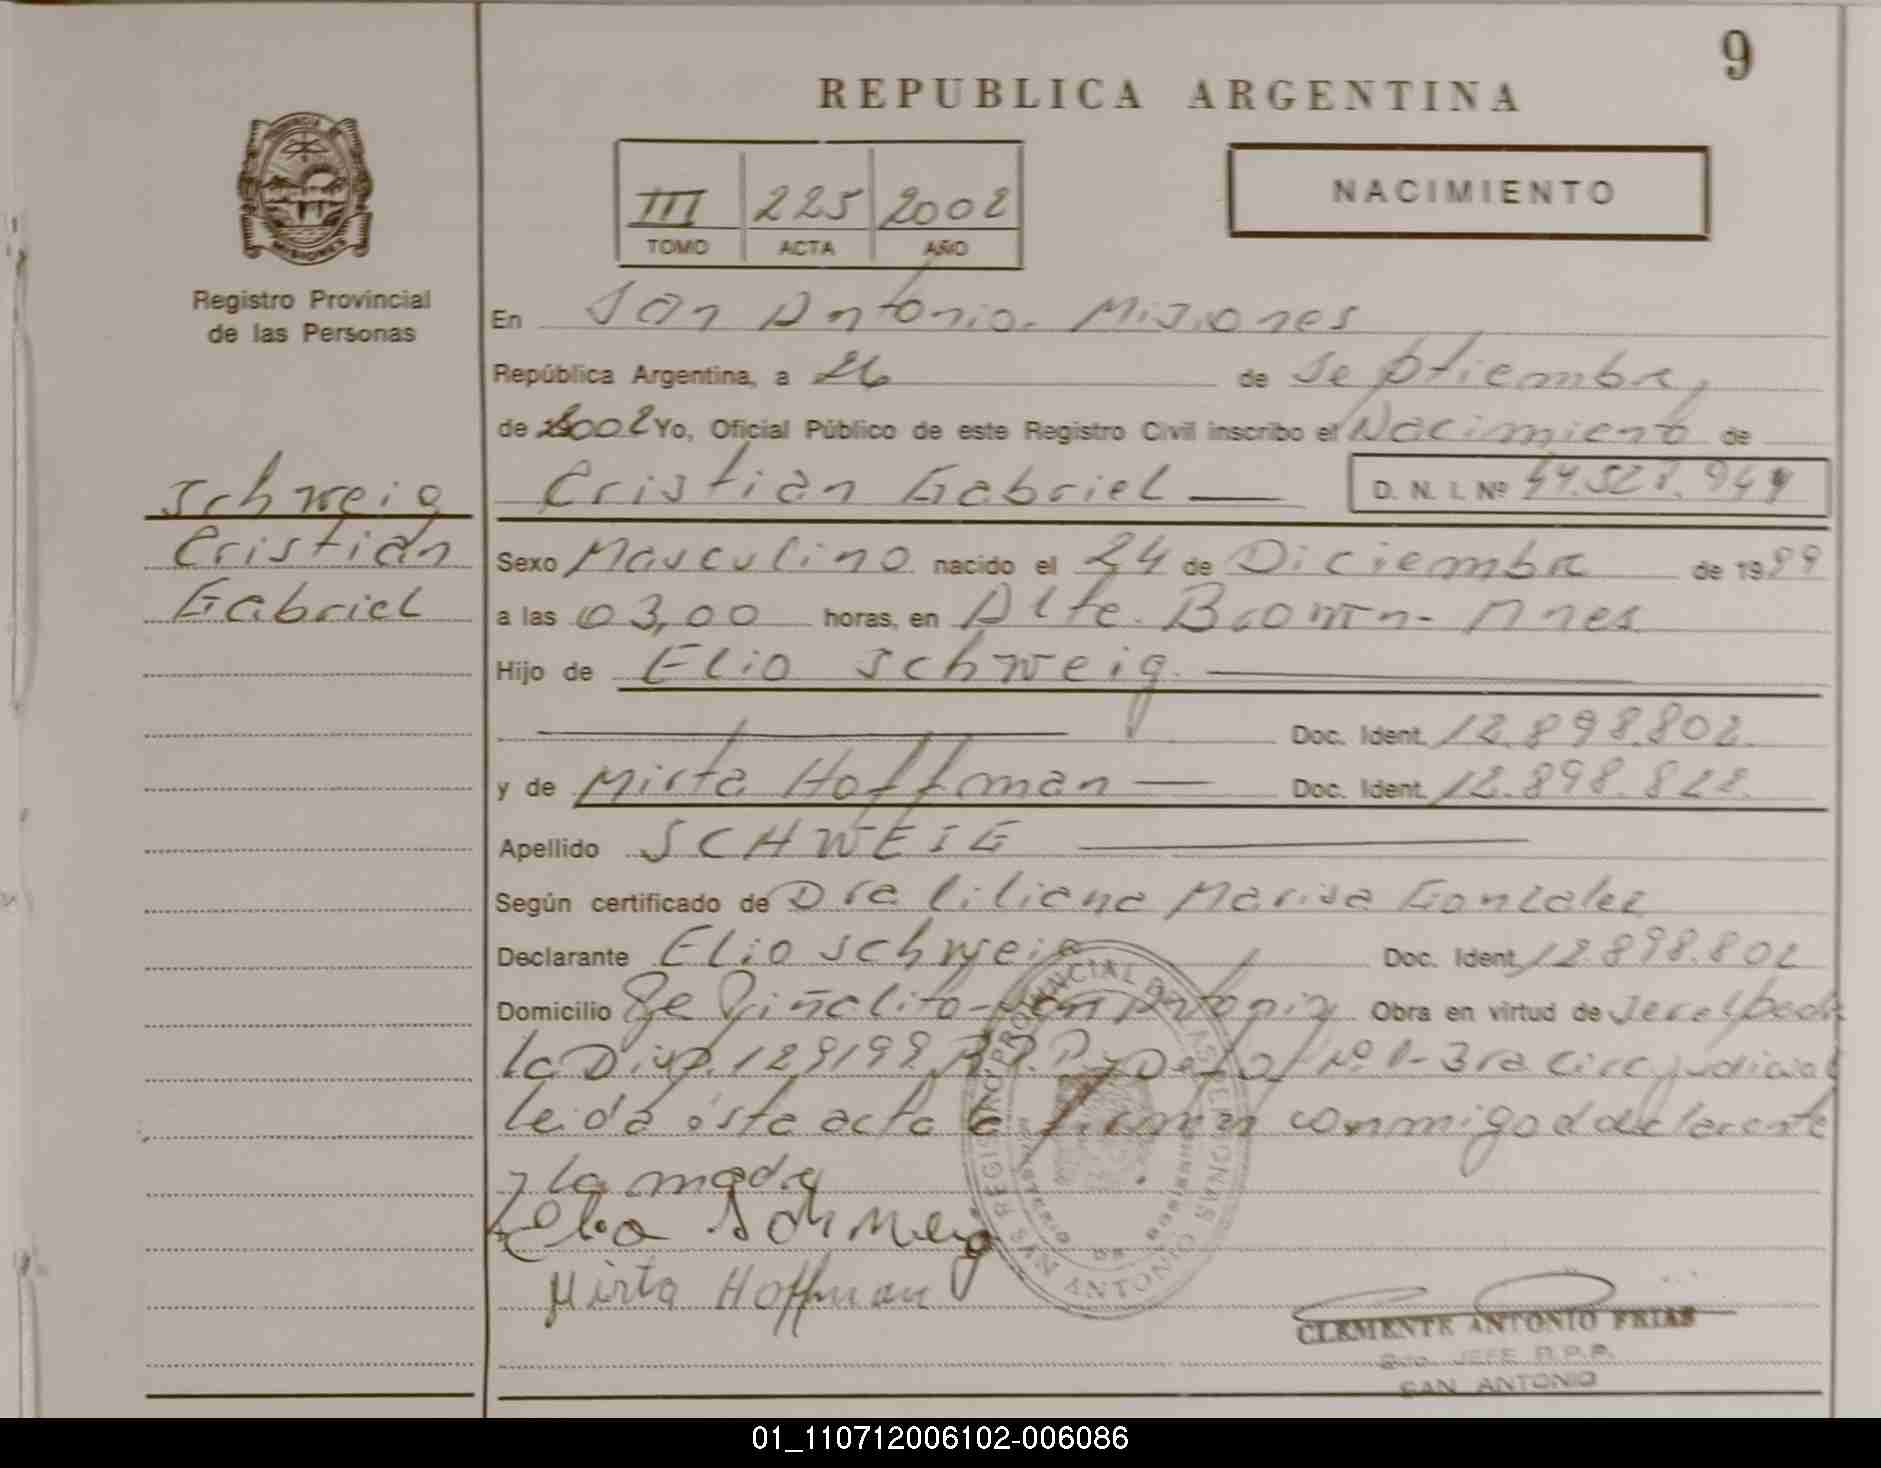 9
REPUBLICA ARGENTINA
III 225 2002
TOMO ACTA AÑO
NACIMIENTO
PROVINCIA
MISIONES
Registro Provincial
de las Personas
Schweig
Cristian
Gabriel
En San Antonio. Misiones
República Argentina, a 26 de Septiembre,
de 2002 Yo, Oficial Público de este Registro Civil inscribo el Nacimiento de
Cristian Gabriel D. N. I. Nº
Sexo Masculino nacido el 24 de Diciembre de 1999
a las 03,00 horas, en Alte. Brown- Mnes
Hijo de Elio Schweig
Doc. Ident. 12.898.802.
y de Mirta Hoffman Doc. Ident. 12.898.828.
Apellido SCHWEIG
Según certificado de Dra Liliana Marisa Gonzalez
Declarante Elio Schweig Doc. Ident. 12.898.802
Domicilio Pje Piñalito-San Antonio Obra en virtud de
la Disp. 129/99 Nº 1-3ra Circ judicial
leida ésta acta la firman conmigo el declarante
y la madre
Mirta Hoffman
SAN ANTONIO
CLEMENTE ANTONIO FRIAS
JEFE R.P.P.
SAN ANTONIO
01_110712006102-006086